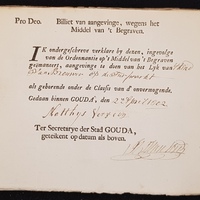 Pro Deo. Billiet van aangevinge, wegens het
Middel van 't Begraven.
IK ondergeschreve verklare by dezen, ingevolge
van de Ordonnantie op 't Middel van 't Begraven
geëmaneert, aangevinge te dien van het Lyk van
als gehorende onder de Classis van d'onvermogende.
Gedaan binnen GOUDA, den 22 April 1802
Matthys
Ter Secretarye der Stad GOUDA,
geteikent op datum als boven.